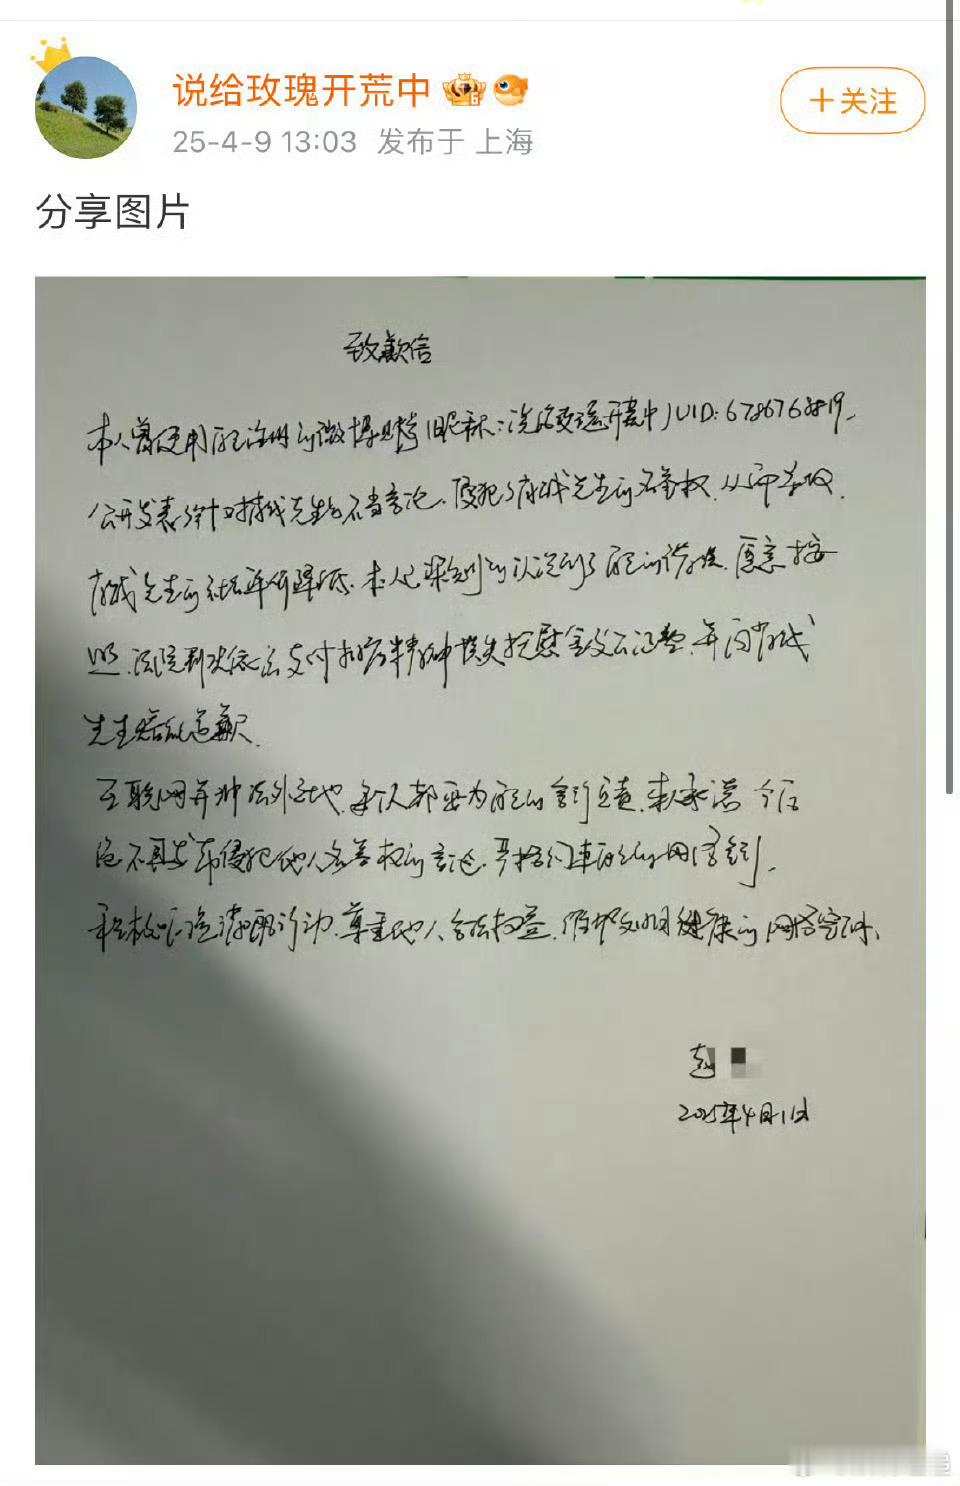 说给玫瑰开荒中
25-4-9 13:03 发布于 上海
+关注
分享图片
致歉信
本人曾使用自己注册的微博账号(昵称:说给玫瑰开荒中)UID:6786763819,
公开发表针对 先生的不当言论,侵犯了 先生的名誉权,从而导致
先生的社会评价降低。本人已深刻的认识到了自己的错误,愿意按
照法院判决依法支付 精神损失抚慰金及公证费,并向
先生赔礼道歉。
互联网并非法外之地,每个人都要为自己的言行负责,本人承诺今后
绝不再发布侵犯他人名誉权的言论,严格约束自己的网络言行。
积极 ,尊重他人合法权益,维护文明健康的网络空间。
赵
2025年4月1日